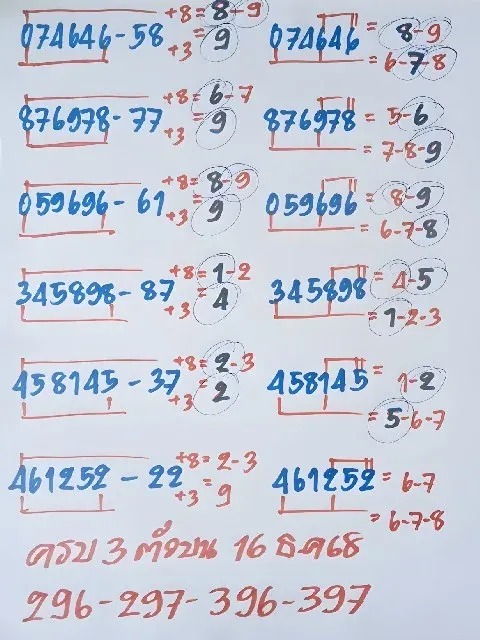 +8 = 8-9
074646-58 = 9
+3
074646 = 8-9
= 6-7-8
+8 = 6-7
876978-77 = 9
+3
876978 = 5-6
= 7-8-9
+8 = 8-9
059696-61 = 9
+3
059696 = 8-9
= 6-7-8
+8 = 1-2
345898-87 = 4
+3
345898 = 4-5
= 1-2-3
+8 = 2-3
458145-37 = 2
+3
458145 = 1-2
= 5-6-7
+8 = 2-3
461252-22 = 9
+3
461252 = 6-7
= 6-7-8
ครบ 3 ตัวบน 16 ธ.ค 68
296-297-396-397